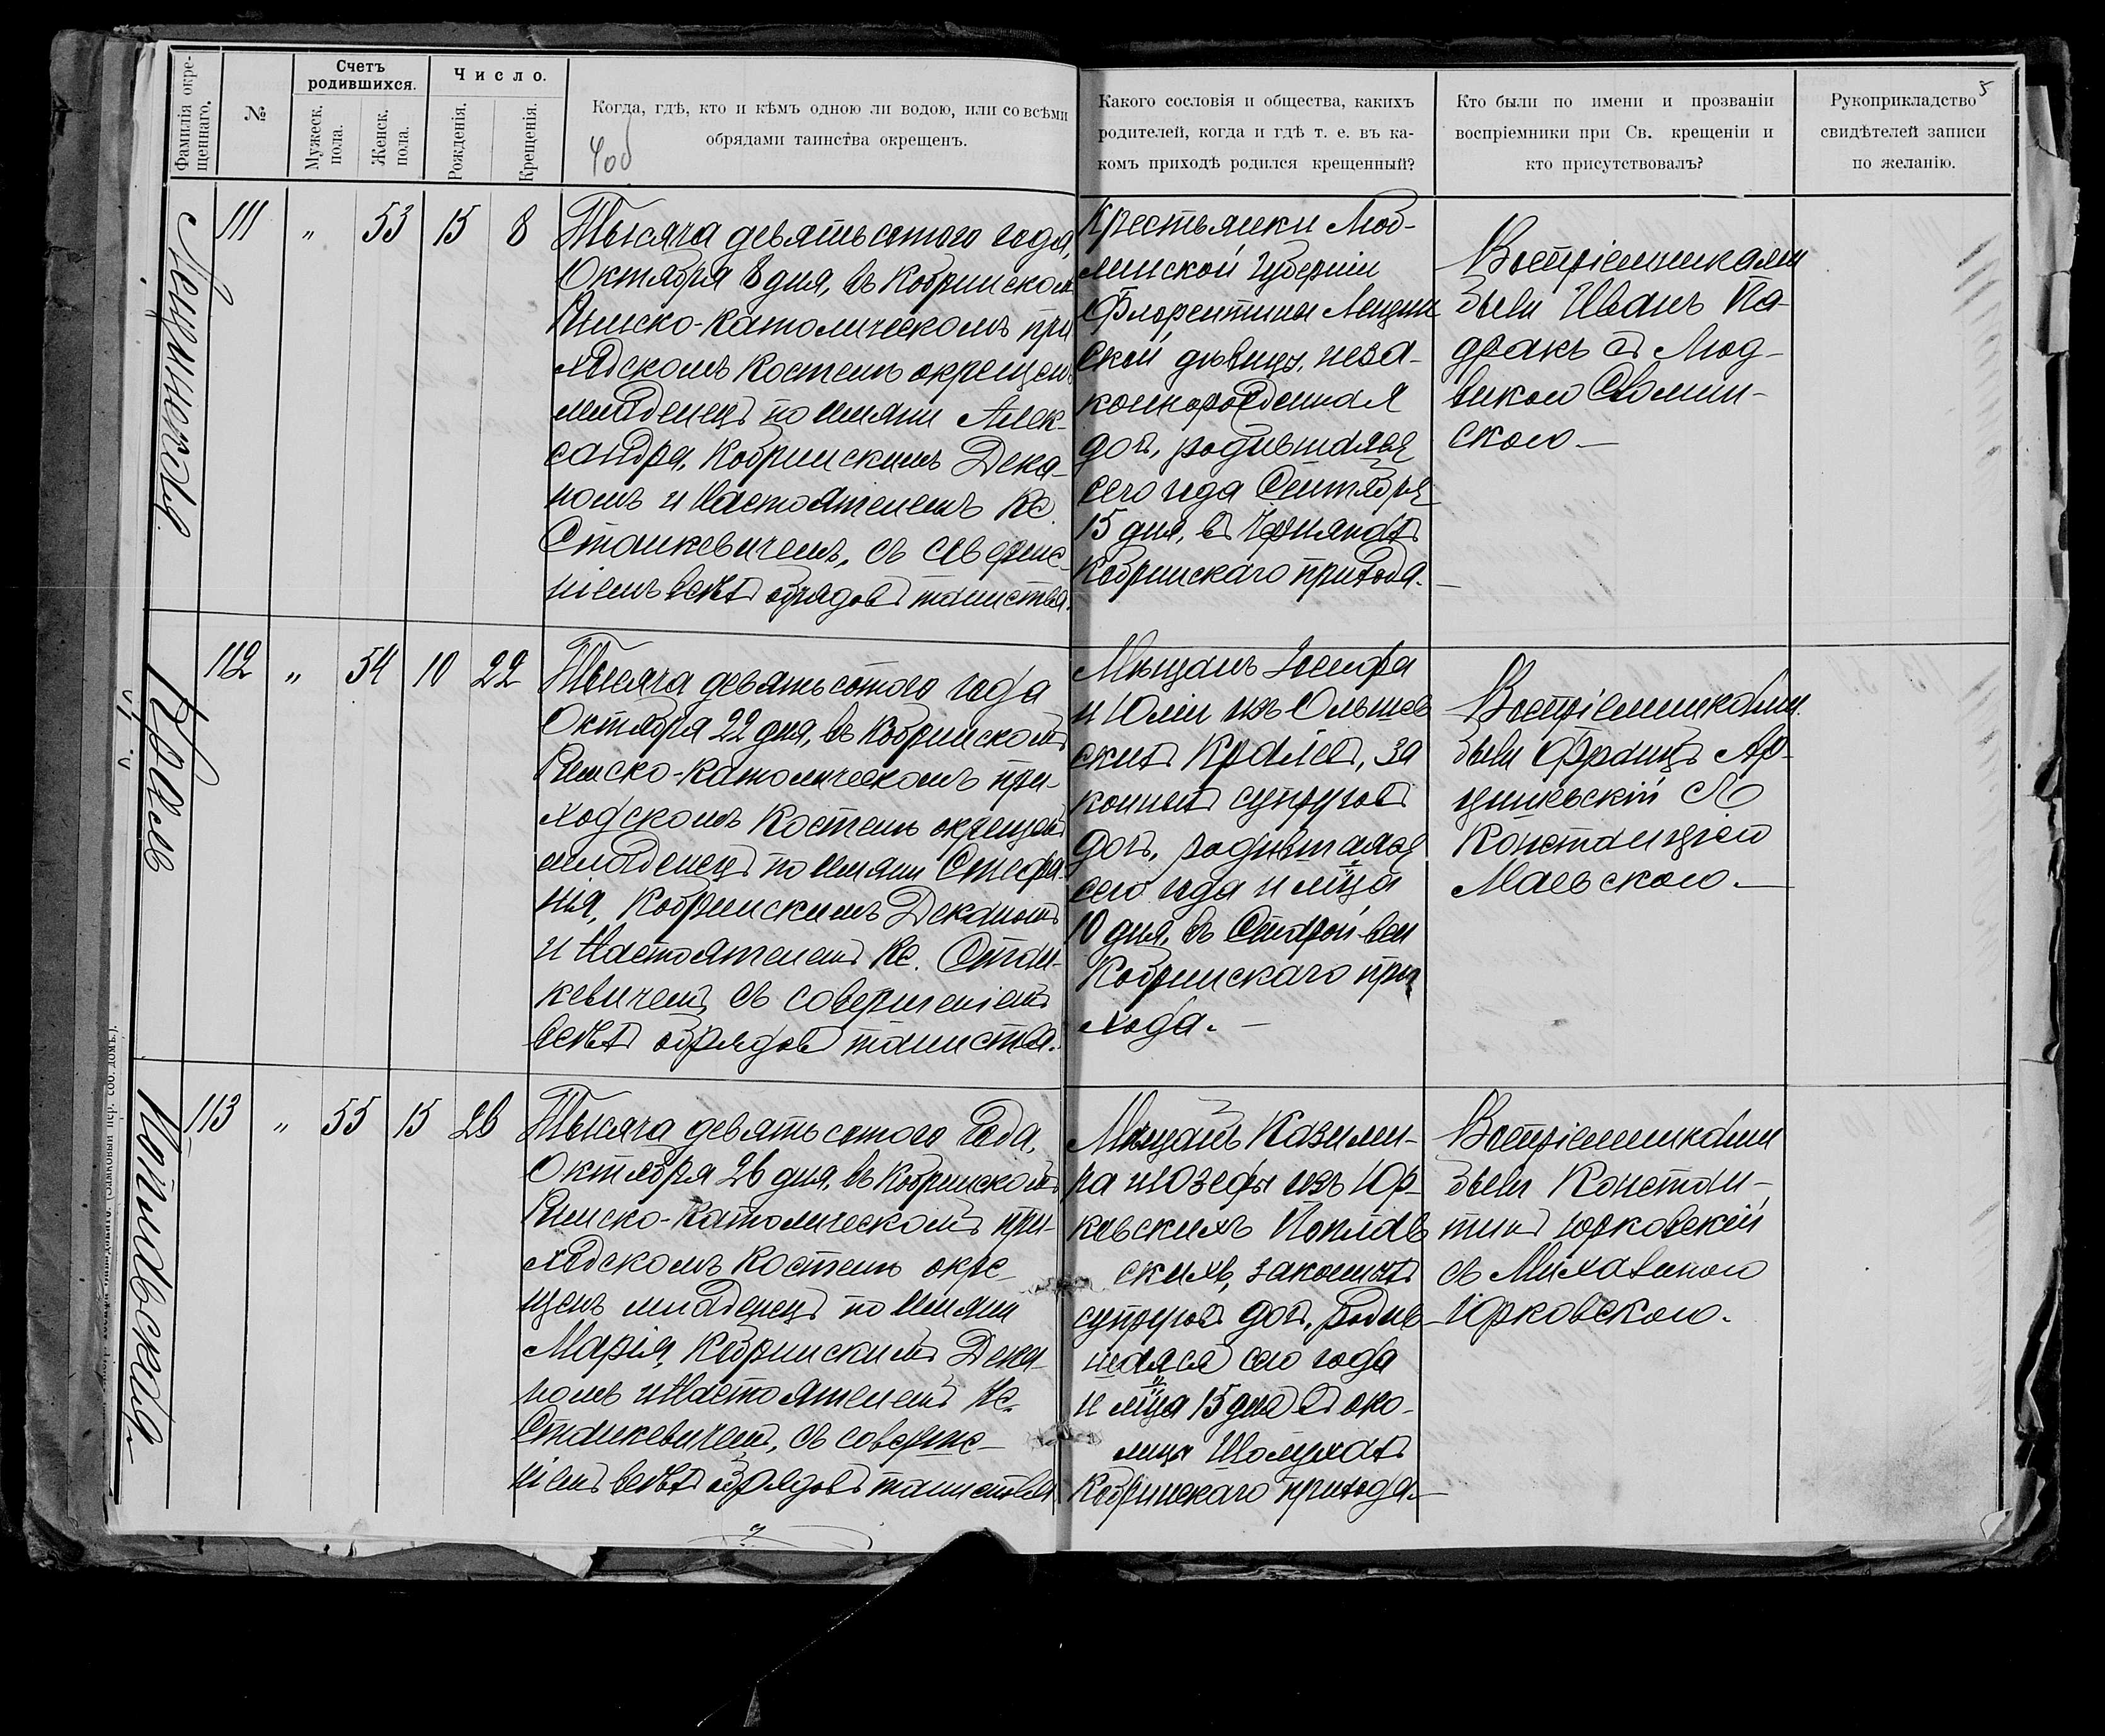 Фамилія окре-
щеннаго.
№
Счетъ
родившихся.
Мужеск.
пола.
Женск.
пола.
Число.
Рожденія.
Крещенія.
Когда, гдѣ, кто и кѣмъ одною ли водою, или со всѣми
обрядами таинства окрещенъ.
Какого сословія и общества, какихъ
родителей, когда и гдѣ т. е. въ ка-
комъ приходѣ родился крещенный?
Кто были по имени и прозваніи
воспріемники при Св. крещеніи и
кто присутствовалъ?
Рукоприкладство
свидѣтелей записи
по желанію.
5
111
"
53
15
8
Тысяча девятьсотого года,
Октября 8 дня, въ Кобринскомъ
Римско-Католическомъ при
ходскомъ Костелѣ окрещенъ
младенецъ по имяни Алек-
сандра, Кобринскимъ Дека-
номъ и Настоятелемъ Кс.
Станкевичемъ, съ соверше-
ніемъ всѣхъ обрядовъ таинства.
Крестьянки Люб-
линской Губерніи
Флорентины Лещин
ской дѣвицы, неза-
коннорожденная
дочь, родившаяся
сего года Сентября
15 дня, въ
Кобринскаго прихода.
Воспріемниками
были Иванъ Ка-
дракъ съ Люд-
викою
скою
112
"
54
10
22
Краль
Тысяча девятьсотого года
Октября 22 дня, въ Кобринскомъ
Римско-Католическомъ при-
ходскомъ Костелѣ окрещенъ
младенецъ по имяни Стефа-
нія, Кобринскимъ Деканомъ
и Настоятелемъ Кс. Стан-
кевичемъ, съ совершеніемъ
всѣхъ обрядовъ таинства.
Мѣщанъ Іосифа
и Юліи изъ Ольшев
скихъ Кралей, за
конныхъ супруговъ
дочь, родившаяся
сего года и м-ца
10 дня, въ
Кобринскаго при
хода.
Воспріемниками
были Францъ
съ
Констанціею
Маевскою.
113
"
55
15
26
Поплавская
Тысяча девятьсотого Года,
Октября 26 дня, въ Кобринскомъ
Римско-Католическомъ при-
ходскомъ Костелѣ окре-
щенъ младенецъ по имяни
Марія, Кобринскимъ Дека-
номъ и Настоятелемъ Кс.
Станкевичемъ, съ соверше-
ніемъ всѣхъ обрядовъ таинства
Мѣщанъ Казими-
ра и Юзефы изъ Юр-
ковскихъ Поплав
скихъ, законныхъ
супруговъ дочь, родив-
шаяся сего года
и м-ца 15 дня въ око-
лицѣ
Кобринскаго прихода.
Воспріемниками
были Констан-
тинъ Юрковскій
съ Михалиною
Юрковскою.